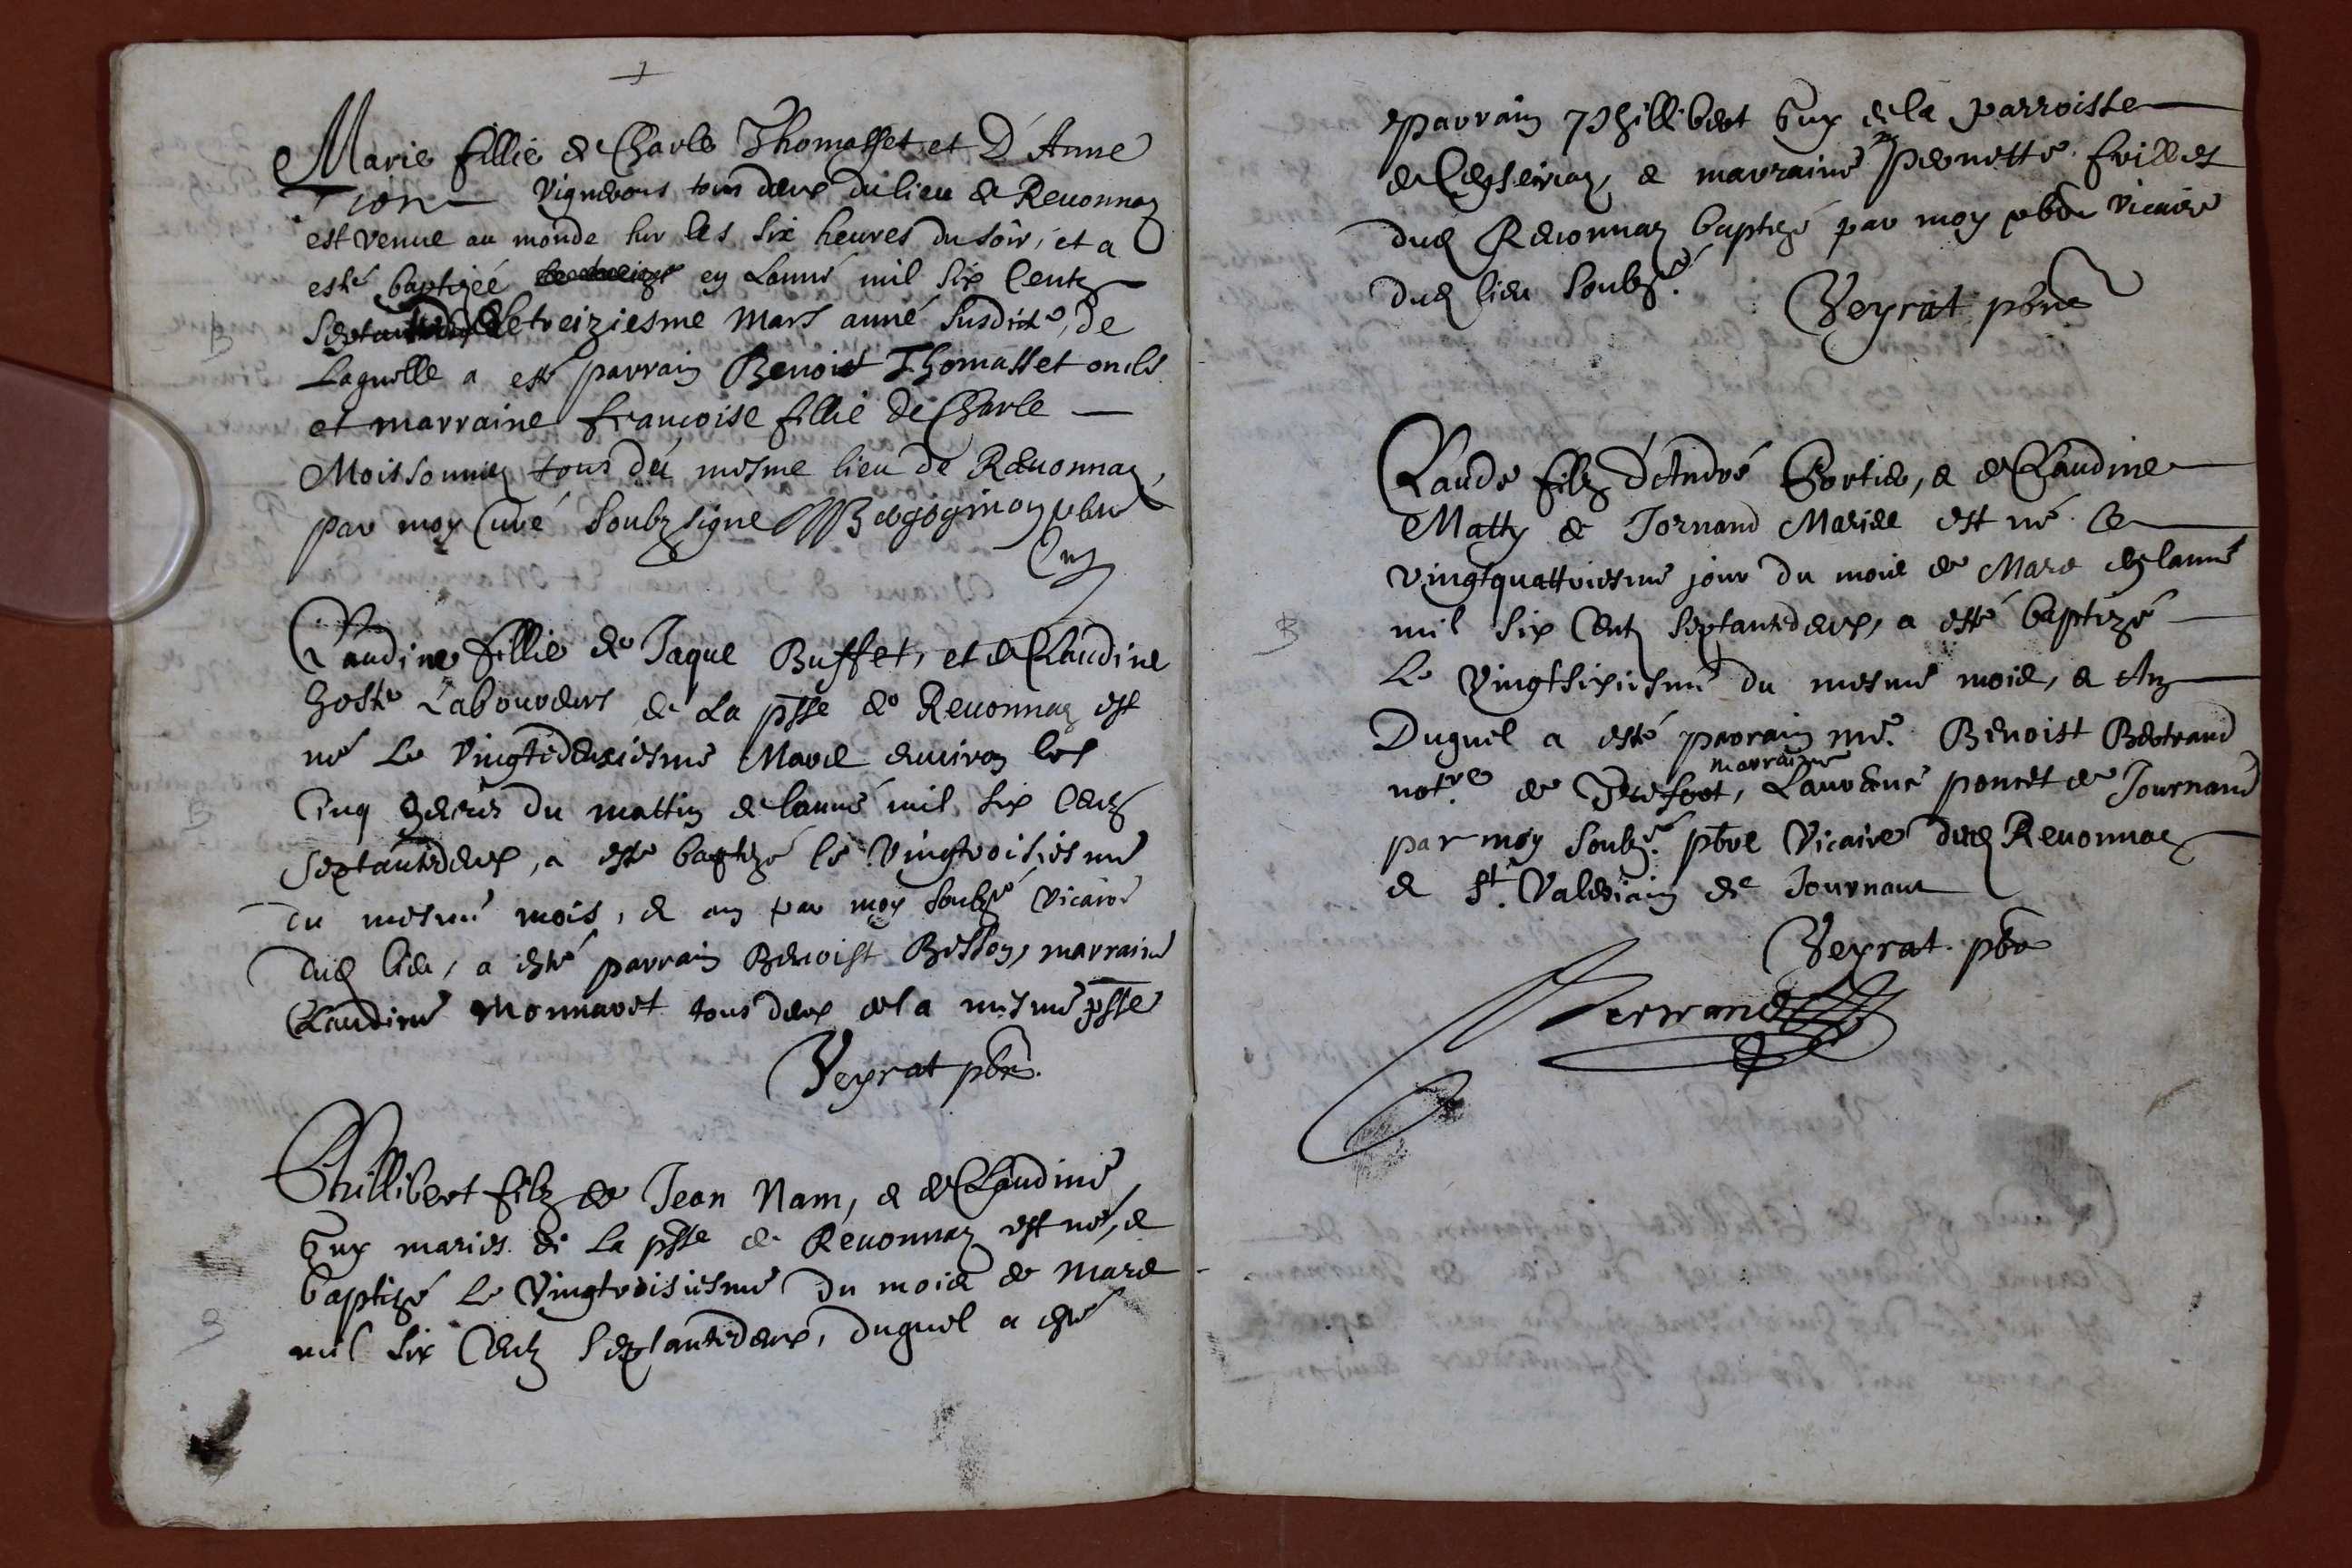 Marie fillie de Charle Thomasset et D'Anne
Tion vignerons tous deux du lieu de Reuonnaz
est venue au monde sur les six heures du soir, et a
esté baptizeé en Lanné mil six Centz
Septante le treiziesme Mars anné susdicte, de
Laquelle a esté parrain Benoist Thomasset oncle
et marraine francoise fillie de Charle
Moissonnier tous du mesme lieu de Reuonnaz,
par moy Curé soubzsigne pbre
Curé
Claudine fillie de Jaque Buffet, et de Claudine
hoste Laboureurs de La psse de Reuonnaz est
né Le vingtedeuxiesme Mars enuiron les
Cinq heures du mattin de lanné mil six Centz
septantedeux, a esté baptizé le vingtroisiesme
du mesme mois, et an par moy soubzné vicaire
dud lieu, a esté parrain Benoist Besson, marraine
Claudine Monnaret tous deux de la mesme psse
Veyrat pbre.
Phillibert filz de Jean Nam, et de Claudine
Guy mariés de la psse de Reuonnaz est né, et
baptizé Le Vingtroisiesme du mois de Mars
mil six Centz septantedeux, duquel a esté
parrain Phillibert Guy de la parroisse
de Ceyseiriaz, et marraine Pernette frillet
dud Reuonnaz baptizé par moy pbre vicaire
dud lieu soubzné.
Veyrat pbre
Claude filz d'André Gortier, et de Claudine
Matty de Jornand Mariés est né le
vingtquattriesme jour du mois de Mars de lanné
mil six Centz septantedeux, a esté baptizé
Le vingtsixiesme du mesme mois, et An
Duquel a esté parrain me. Benoist Bertrand
notre. de Treffort, marraine Laurence poncet de Journand
par moy soubzné. pbre Vicaire dud Reuonnaz
et St. Valeriain de Journant
Veyrat pbre
Bertrand